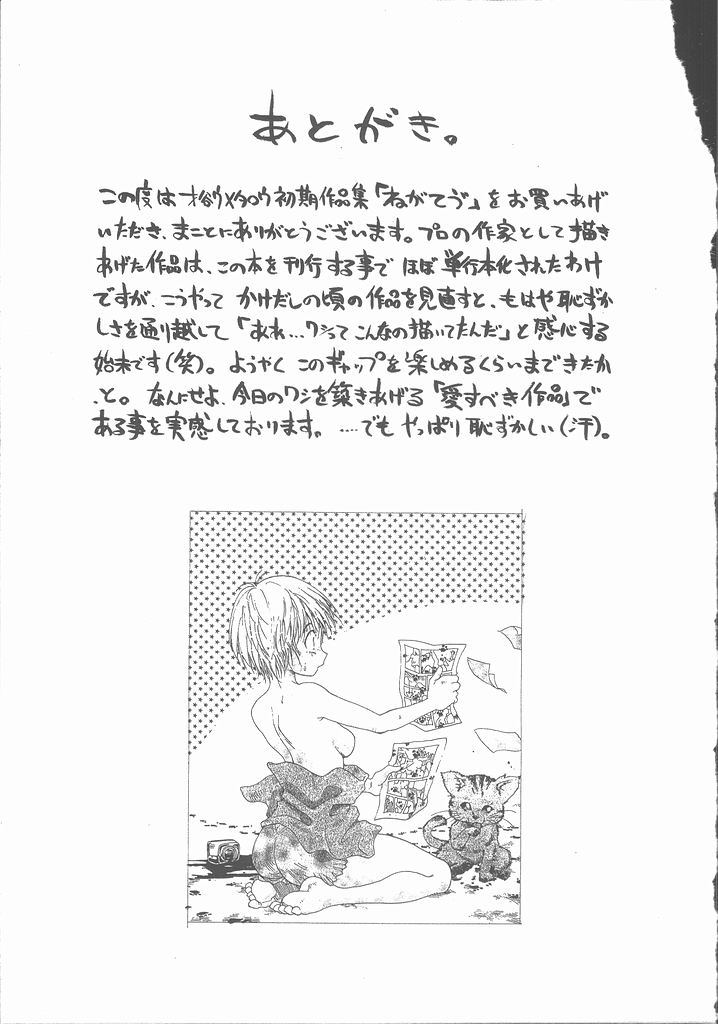 あとがき。
この度は才谷ウメタロウ初期作品集「ねがてぃう゛」をお買いあげ
いただき、まことにありがとうございます。プロの作家として描き
あげた作品は、この本を刊行する事でほぼ単行本化されたわけ
ですが、こうやってかけだしの頃の作品を見直すと、もはや恥ずか
しさを通り越して「あれ…ワシってこんなの描いてたんだ」と感心する
始末です(笑)。ようやくこのギャップを楽しめるくらいまできたか
、と。なんにせよ、今日のワシを築きあげる「愛すべき作品」で
ある事を実感しております。……でもやっぱり恥ずかしい(汗)。